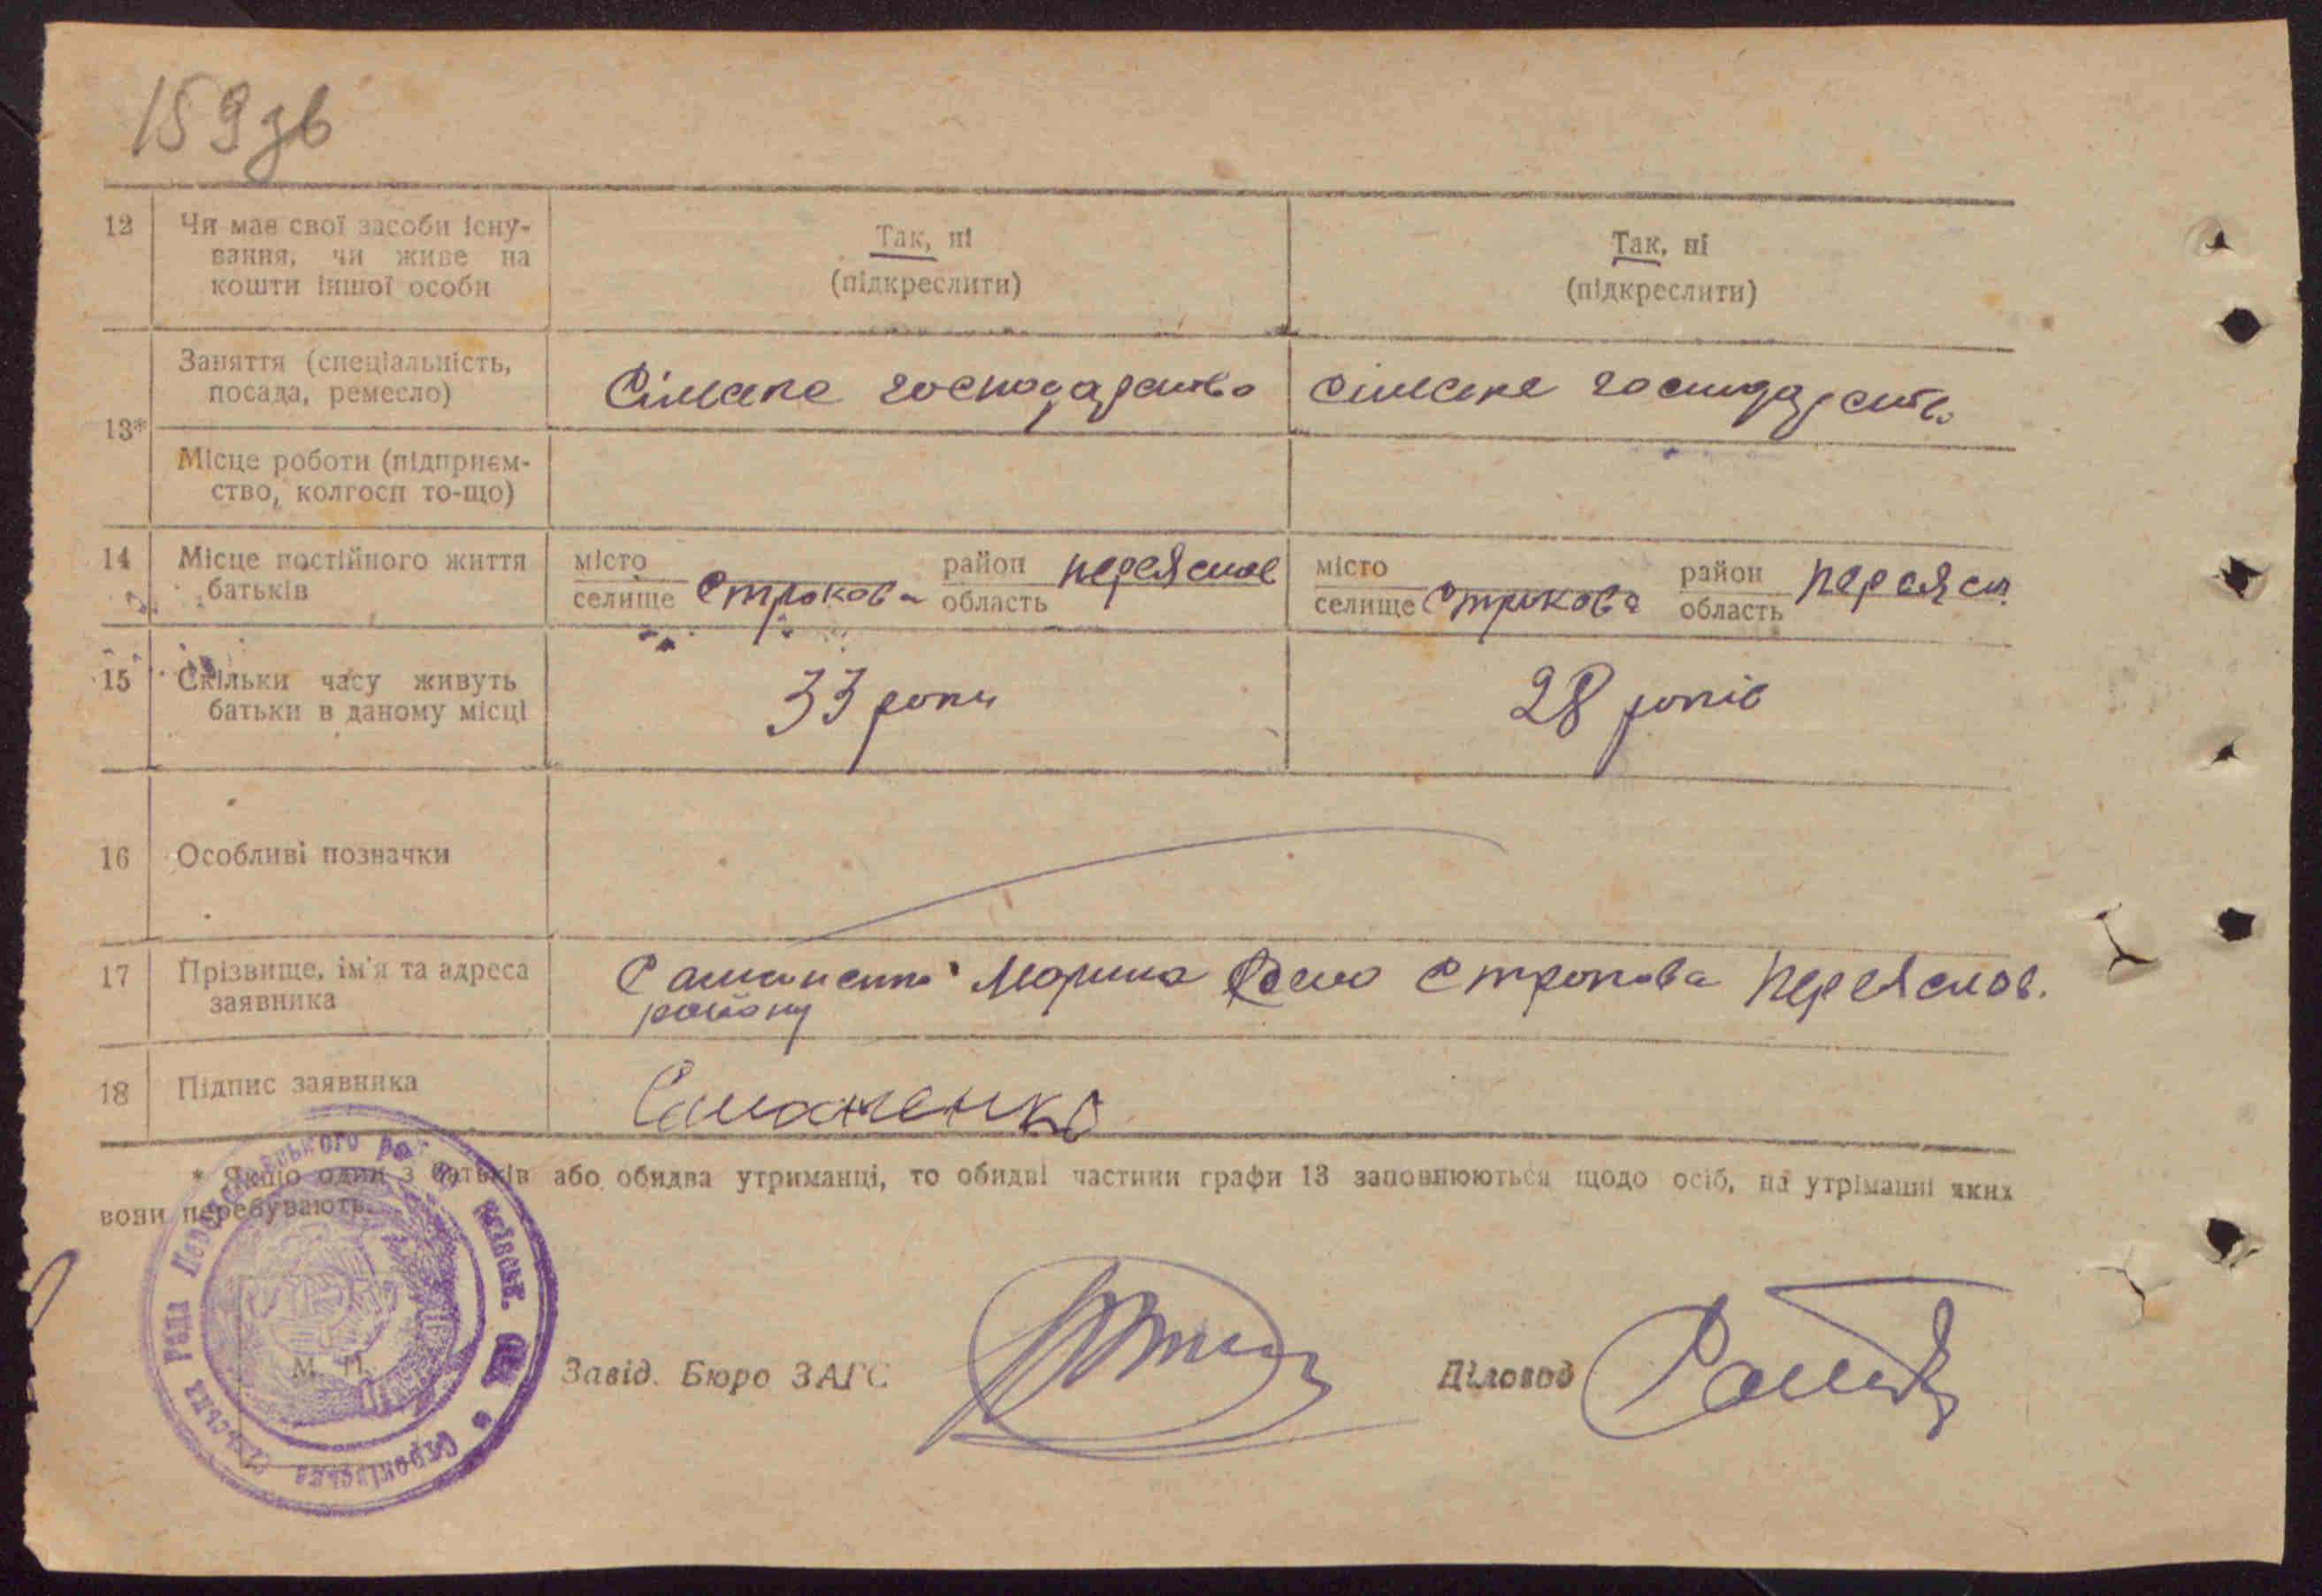 159зв
12 Чи має свої засоби існу- Так, ні Так, ні
вання, чи живе на
кошти іншої особи (підкреслити) (підкреслити)
13* Заняття (спеціальність, Сільське господарство сільське господарство
посада, ремесло)
Місце роботи (підприєм-
ство, колгосп то-що)
14 Місце постійного життя місто район Переяслов місто район Переясл
батьків селище Строкова область селище Строкова область
15 Скільки часу живуть 33 роки 28 років
батьки в даному місці
16 Особливі позначки
17 Прізвище, ім'я та адреса Марина село Строкова Переяслов.
заявника району
18 Підпис заявника
* Якщо один з батьків або обидва утриманці, то обидві частини графи 13 заповнюються щодо осіб, на утріманні яких
вони перебувають.
Строківська сільська Рада
М. П. Завід. Бюро ЗАГС Діловод